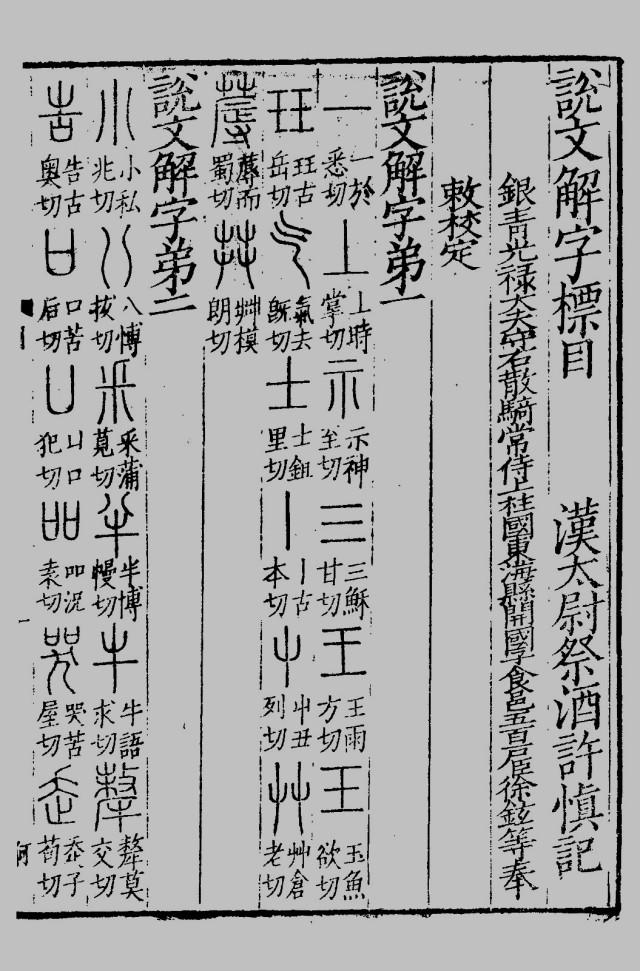 說文解字標目 漢太尉祭酒許慎記
銀青光祿大夫守右散騎常侍上柱國東海縣開國子食邑五百戶臣徐鉉等奉
敕校定
說文解字弟一
一 一於悉切 丄 丄時掌切 示 示神至切 三 三穌甘切 王 王雨方切 玉 玉魚欲切
玨 玨古岳切 气 氣去旣切 士 士鉏里切 丨 丨古本切 屮 屮丑列切 艸 艸倉老切
蓐 蓐而蜀切 茻 茻模朗切
說文解字弟二
小 小私兆切 八 八博拔切 釆 釆蒲莧切 半 半博慢切 牛 牛語求切 犛 犛莫交切
告 告古奧切 口 口苦后切 凵 凵口犯切 吅 吅況袁切 哭 哭苦屋切 走 走子苟切